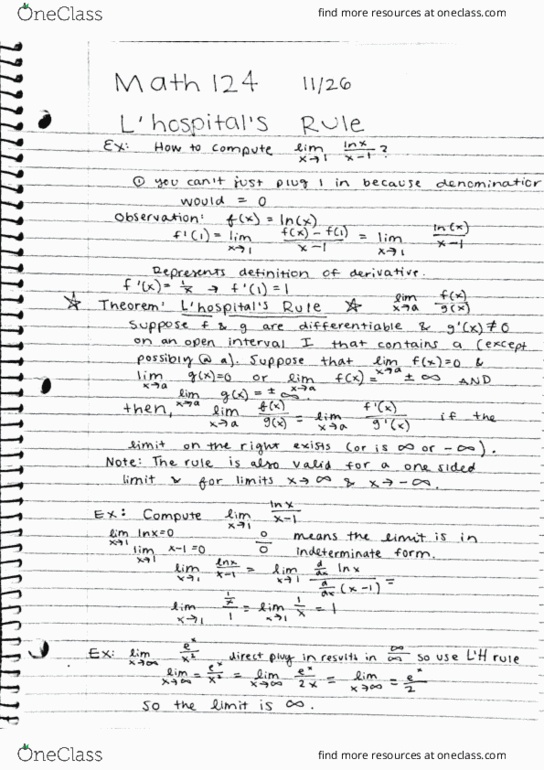 OneClass find more resources at oneclass.com
Math 124 11/26
L'hospital's Rule
Ex: How to compute lim x→1 lnx/x-1?
① you can't just plug 1 in because denominator
would = 0
Observation: f(x) = ln(x)
f'(1) = lim x→1 f(x) - f(1)/x-1 = lim x→1 ln(x)/x-1
Represents definition of derivative.
f'(x) = 1/x → f'(1) = 1
☆ Theorem: L'hospital's Rule ☆ lim x→a f(x)/g(x)
Suppose f & g are differentiable & g'(x) ≠ 0
on an open interval I that contains a (except
possibly @ a). Suppose that lim x→a f(x)=0 &
lim x→a g(x)=0 or lim x→a f(x) = ± ∞ AND
lim x→a g(x) = ± ∞.
then, lim x→a f(x)/g(x) = lim x→a f'(x)/g'(x) if the
limit on the right exists (or is ∞ or -∞).
Note: The rule is also valid for a one sided
limit & for limits x→∞ & x→-∞.
Ex: Compute lim x→1 lnx/x-1
lim x→1 lnx=0 0/0 means the limit is in
lim x→1 x-1=0 indeterminate form.
lim x→1 lnx/x-1 = lim x→1 d/dx lnx / d/dx (x-1) =
lim x→1 1/x/1 = lim x→1 1/x = 1
Ex: lim x→∞ e^x/x² direct plug in results in ∞/∞ so use L'H rule
lim x→∞ = e^x/x² = lim x→∞ e^x/2x = lim x→∞ = e^x/2
so the limit is ∞.
OneClass find more resources at oneclass.com